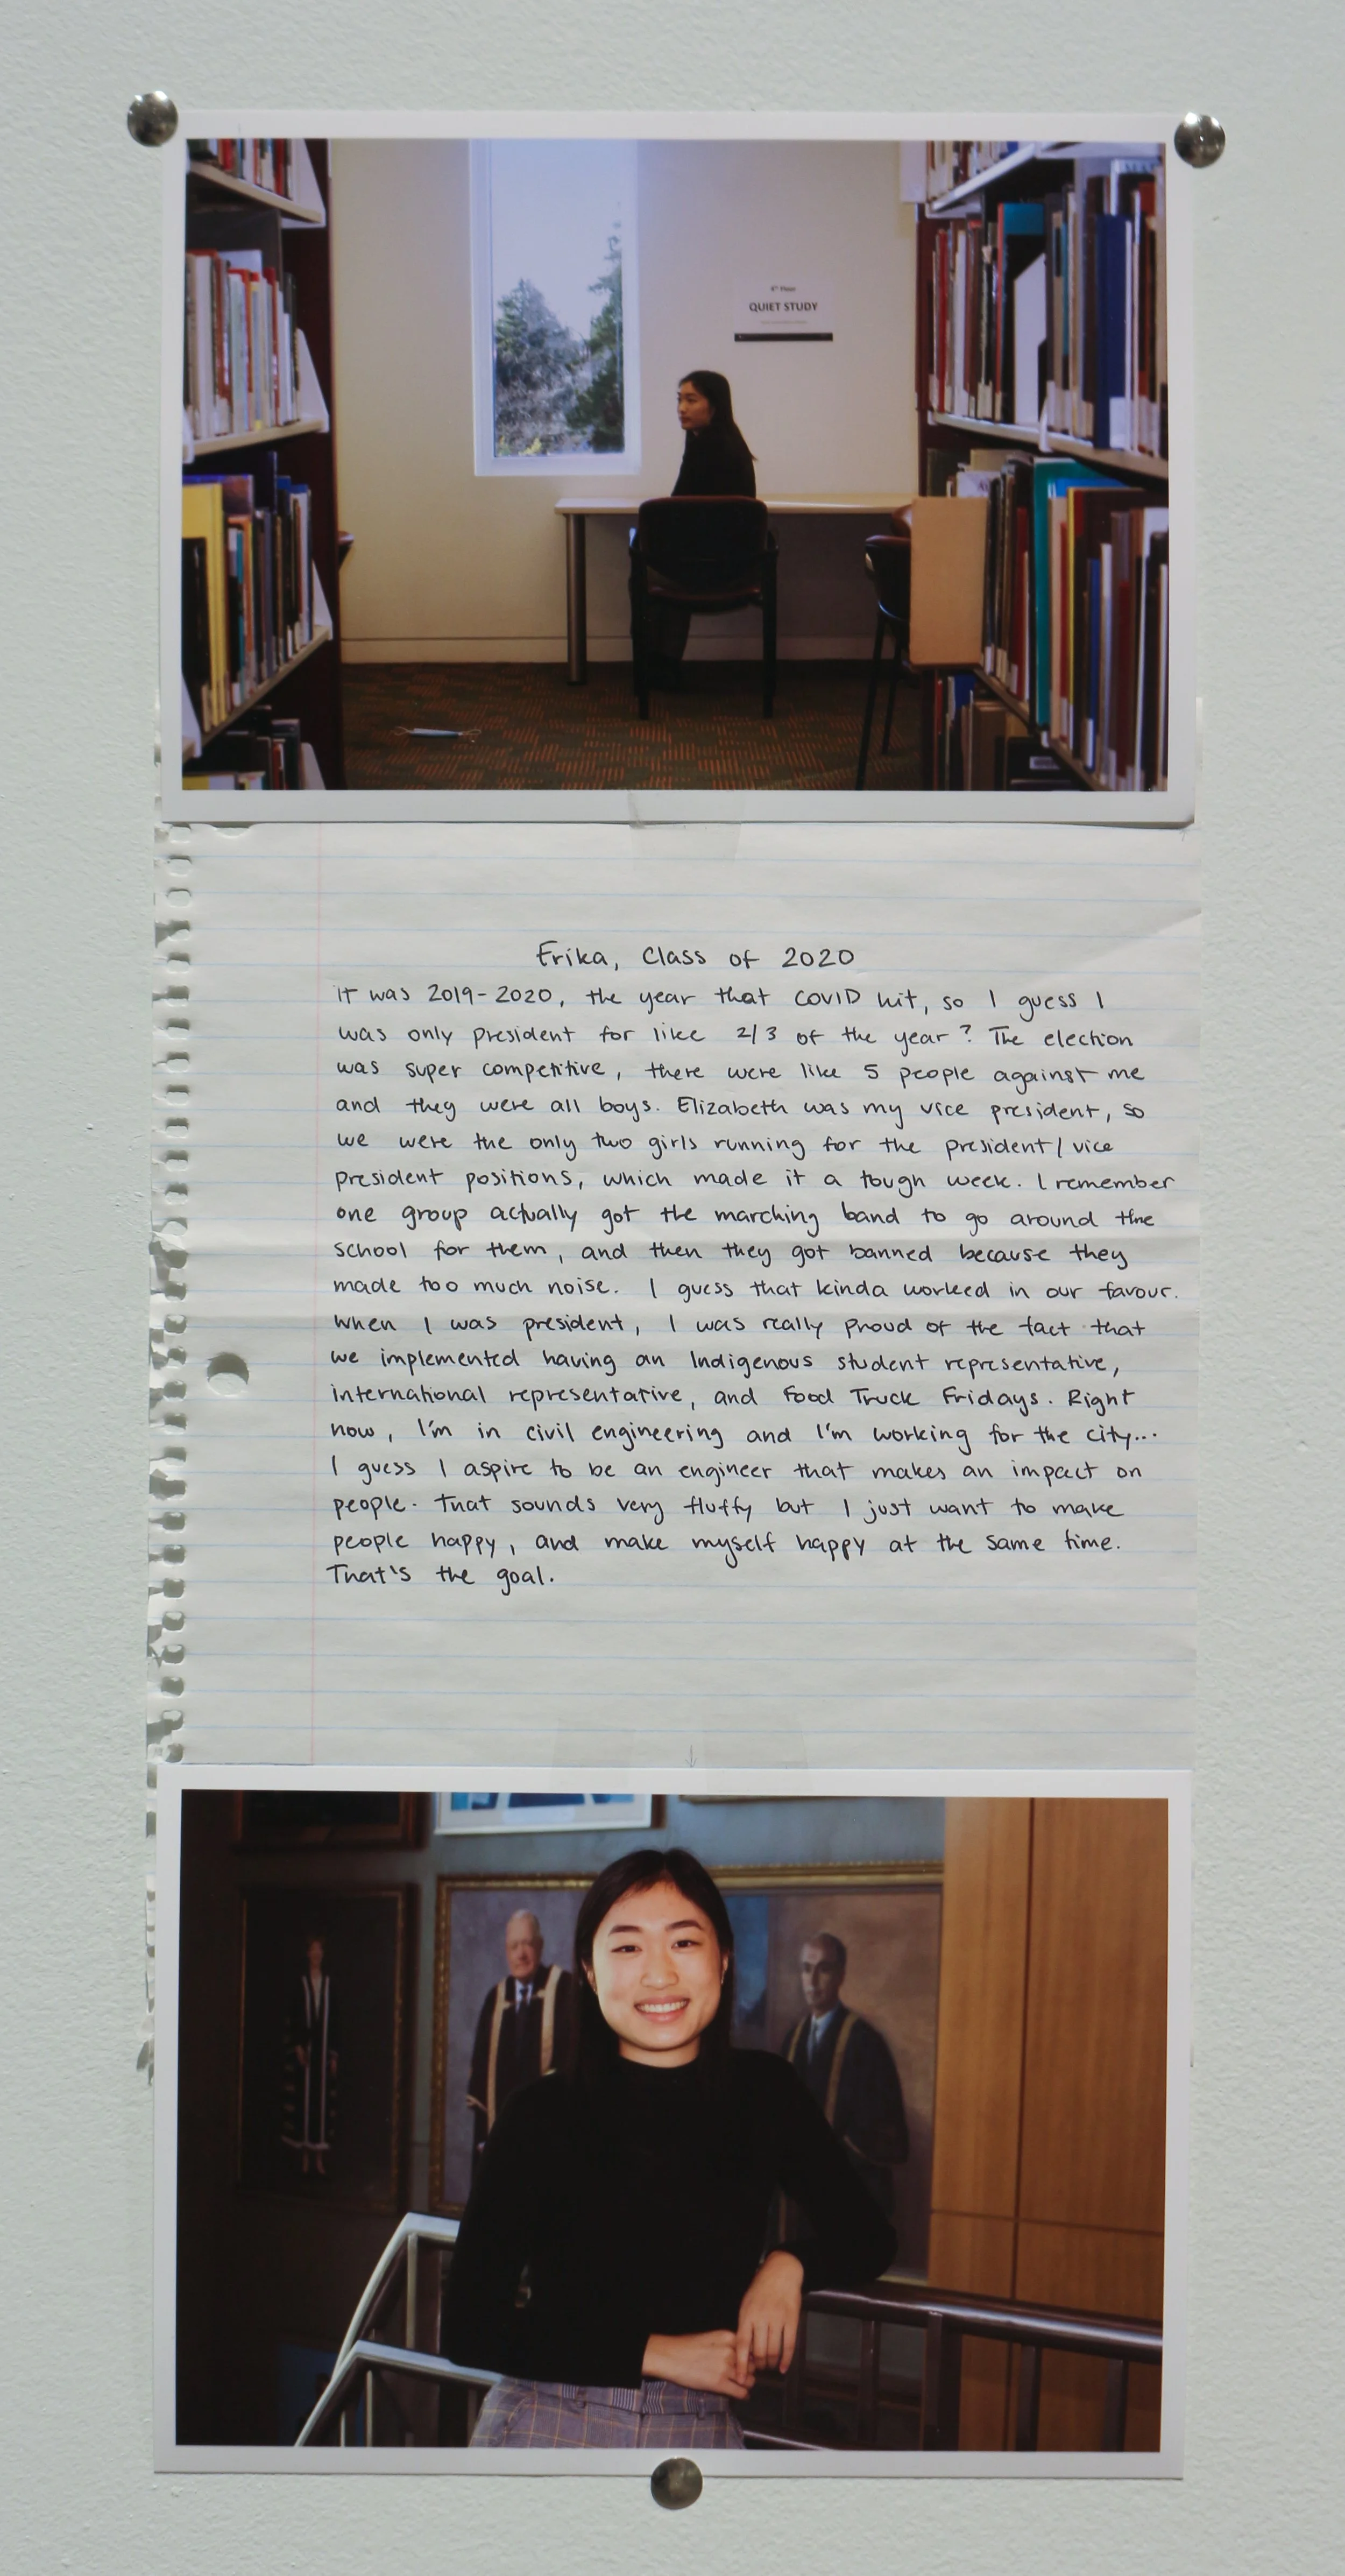 4th Floor
QUIET STUDY
Erika, Class of 2020
It was 2019-2020, the year that COVID hit, so I guess I
was only president for like 2/3 of the year? The election
was super competitive, there were like 5 people against me
and they were all boys. Elizabeth was my vice president, so
we were the only two girls running for the president/vice
president positions, which made it a tough week. I remember
one group actually got the marching band to go around the
school for them, and then they got banned because they
made too much noise. I guess that kinda worked in our favour.
When I was president, I was really proud of the fact that
we implemented having an Indigenous student representative,
international representative, and Food Truck Fridays. Right
now, I'm in civil engineering and I'm working for the city...
I guess I aspire to be an engineer that makes an impact on
people. That sounds very fluffy but I just want to make
people happy, and make myself happy at the same time.
That's the goal.